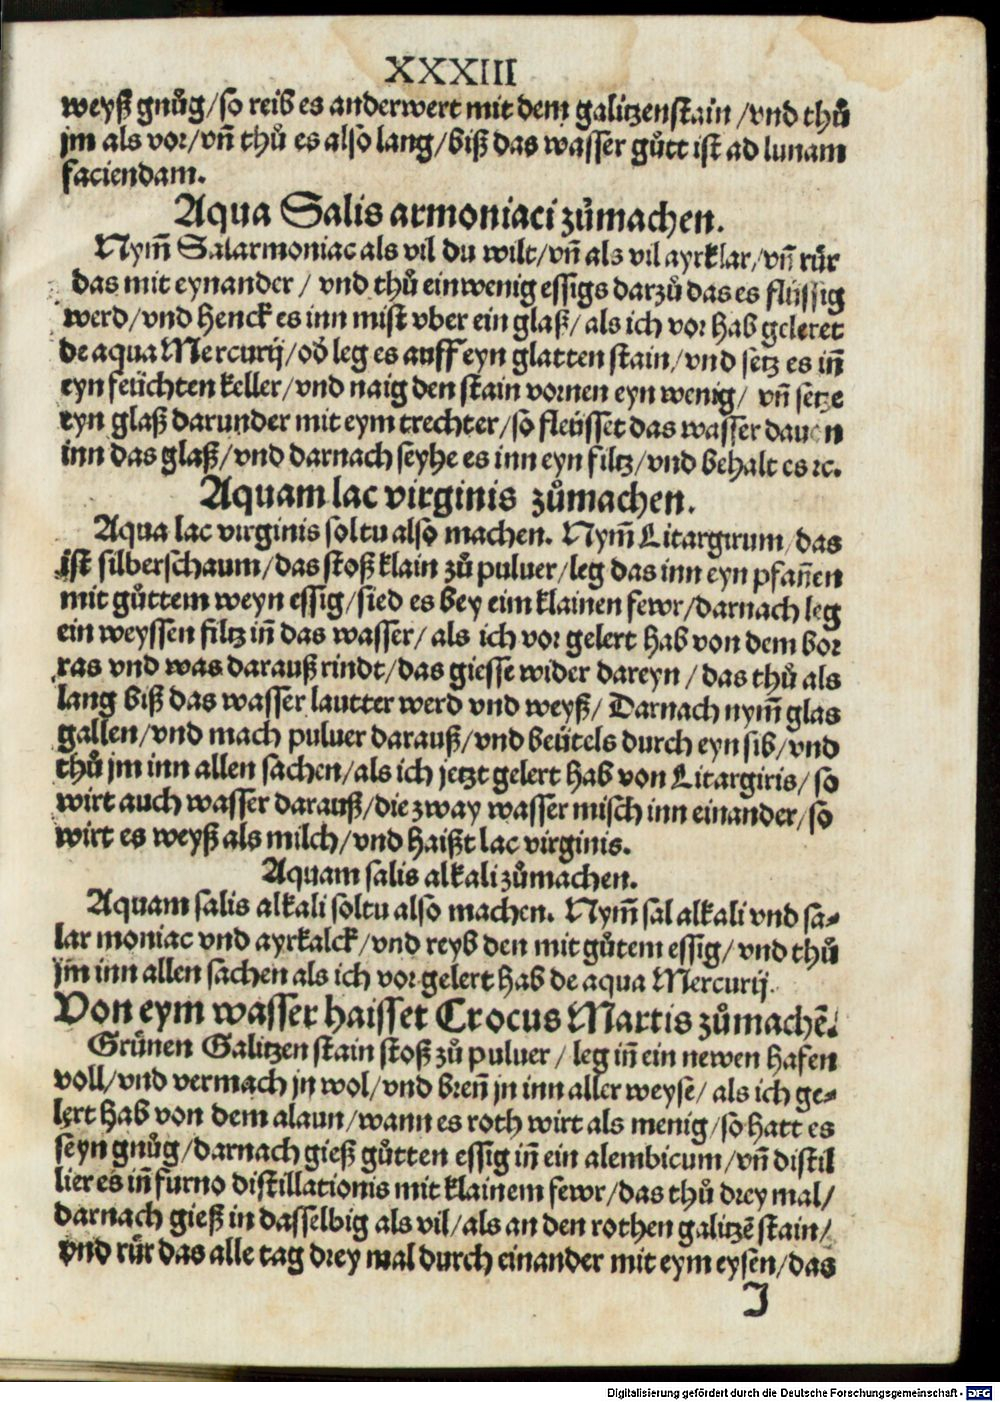 XXXIII
weyß gnůg/so reib es anderwert mit dem galitzenstain/vnd thů
jm als vor/vñ thů es also lang/biß das wasser gůtt ist ad lunam
faciendam.
Aqua Salis armoniaci zůmachen.
Nym̃ Salarmoniac als vil du wilt/vñ als vil ayrklar/vñ růr
das mit eynander/ vnd thů ein wenig essigs darzů das es flüssig
werd/vnd henck es inn mist vber ein glaß/als ich vor hab geleret
de aqua Mercurij/oď leg es auff eyn glatten stain/vnd setz es iñ
eyn feüchten keller/vnd naig den stain vornen eyn wenig/ vñ setze
eyn glaß darunder mit eym trechter/so fleüsset das wasser dauon
inn das glaß/vnd darnach seyhe es inn eyn filtz/vnd behalt es ꝛc.
Aquam lac virginis zůmachen.
Aqua lac virginis soltu also machen. Nym̃ Litargirum/das
ist silberschaum/das stoß klain zů puluer/leg das inn eyn pfañen
mit gůttem weyn essig/sied es bey eim klainen fewr/darnach leg
ein weyssen filtz iñ das wasser/ als ich vor gelert hab von dem bor
ras vnd was darauß rindt/das giesse wider dareyn/das thů als
lang biß das wasser lautter werd vnd weyß/ Darnach nym̃ glas
gallen/vnd mach puluer darauß/vnd beütels durch eyn sib/vnd
thů jm inn allen sachen/als ich jetzt gelert hab von Litargiris/so
wirt auch wasser darauß/die zway wasser misch inn einander/so
wirt es weyß als milch/vnd haißt lac virginis.
Aquam salis alkali zůmachen.
Aquam salis alkali soltu also machen. Nym̃ sal alkali vnd sa-
lar moniac vnd ayrkalck/vnd reyb den mit gůtem essig/vnd thů
jm inn allen sachen als ich vor gelert hab de aqua Mercurij.
Von eym wasser haisset Crocus Martis zůmachẽ.
Grůnen Galitzen stain stoß zů puluer/leg iñ ein newen hafen
voll/vnd vermach jn wol/vnd breñ jn inn aller weyse/als ich ge-
lert hab von dem alaun/wann es roth wirt als menig/so hatt es
seyn gnůg/darnach gieß gůtten essig iñ ein alembicum/vñ distil
lier es iñ furno distillationis mit klainem fewr/das thů drey mal/
darnach gieß in dasselbig als vil/als an den rothen galitzẽ stain/
vnd růr das alle tag drey mal durch einander mit eym eysen/das
J
Digitalisierung gefördert durch die Deutsche Forschungsgemeinschaft - DFG